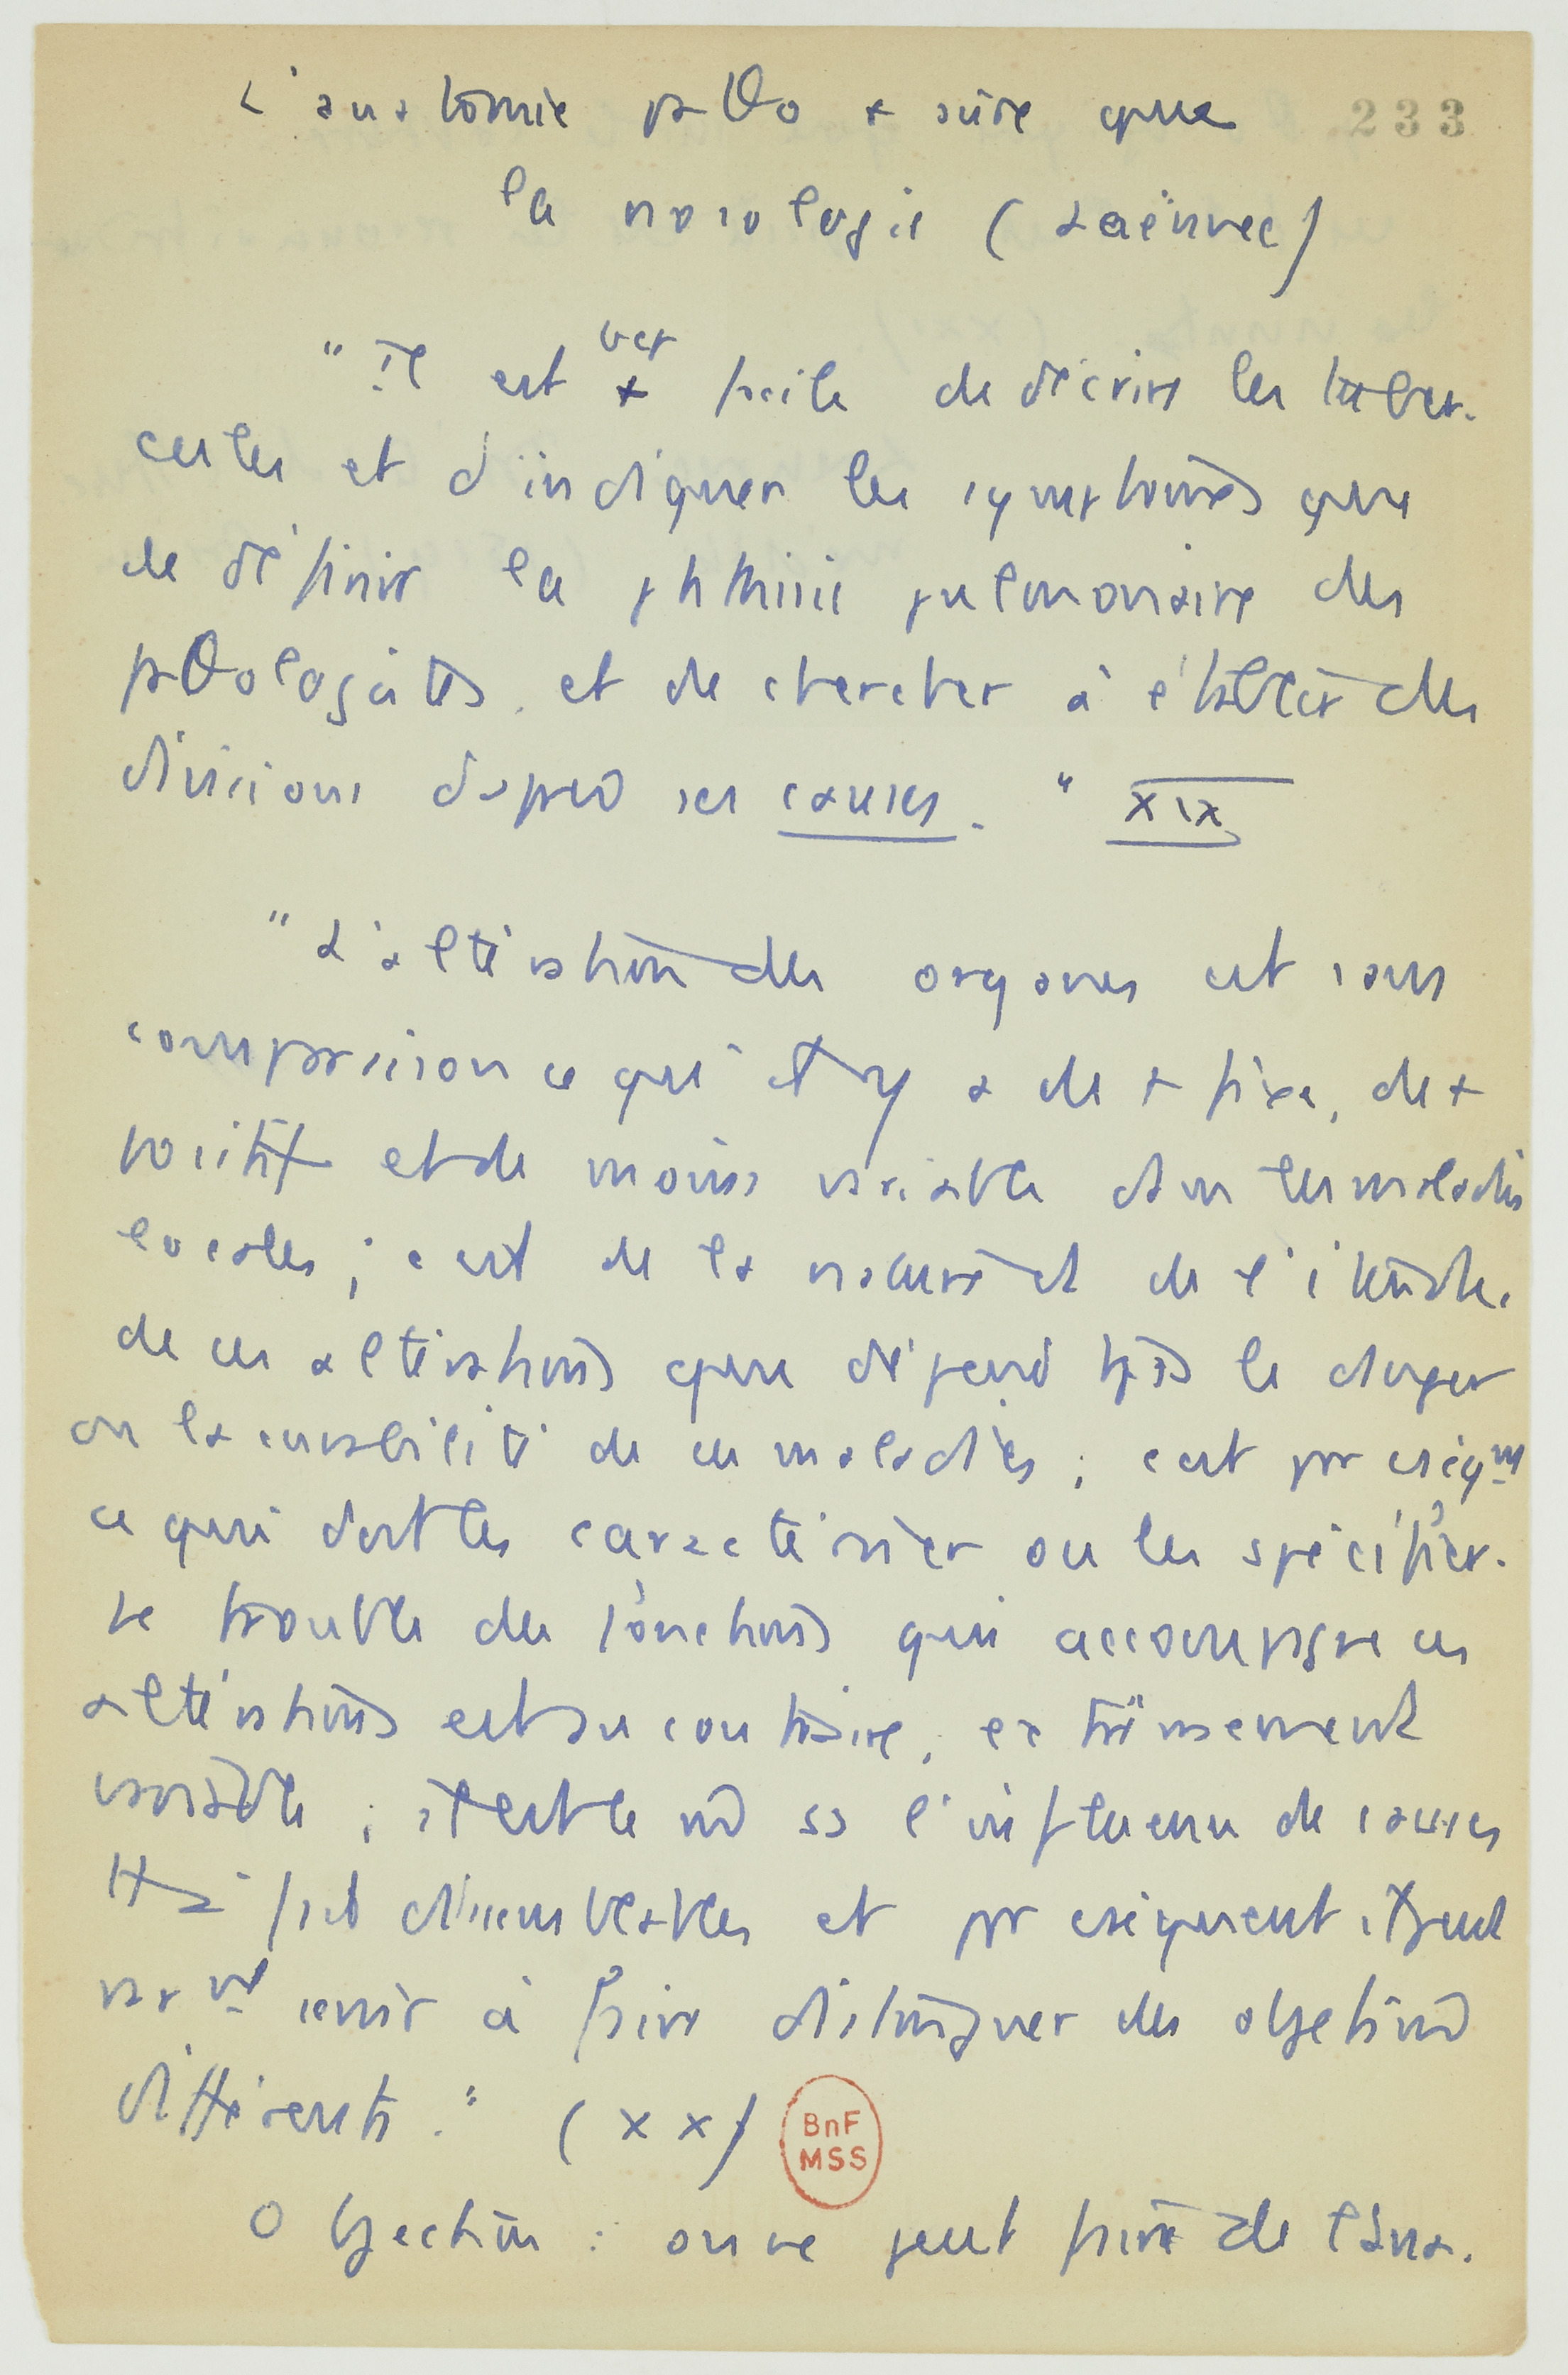 L'anatomie pθo + sûre que
233
la nosologie (Laënnec)
"Il est bcp + facile de décrire les tuber-
cules et d'indiquer les symptômes que
de définir la phthisie pulmonaire des
pθologistes, et de chercher à établir des
divisions d'après ses causes. " XIX
"L'altération des organes est sans
comparaison ce qu'il y a de + fixe, de +
positif et de moins variable dans les maladies
locales ; c'est de la nature et de l'étendue
de ces altérations que dépend tjs le danger
ou la curabilité de ces maladies ; c'est par
ce qui doit les caractériser ou les spécifier.
Le trouble des fonctions qui accompagne ces
altérations est au contraire, extrêmement
variable ; il est le ss l'influence de causes
fait dissemblables et par cséquent il peut
servir à faire distinguer des objets
différents." (XX)
BnF
MSS
Objection : on ne peut faire de l'ana-